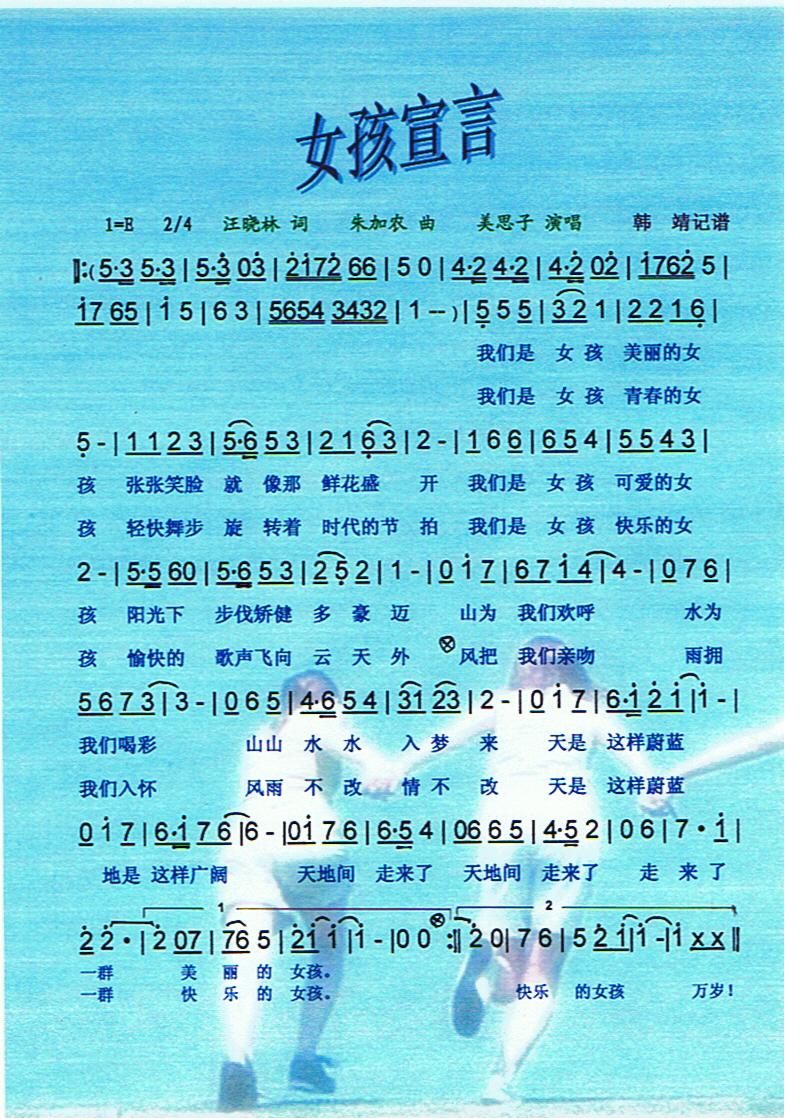 女孩宣言
1=E 2/4 汪晓林 词 朱加农 曲 美思子 演唱 韩 靖记谱
‖:( 5·3 5·3 | 5·3̇ 03̇ | 2̇1̇72̇ 66 | 5 0 | 4·2 4·2 | 4·2̇ 02̇ | 1̇762̇ 5 |
1̇7 65 | 1̇ 5 | 6 3 | 5654 3432 | 1 -- ) | 5̣ 5 5 | 3 2 1 | 2 2 1 6̣ |
我们是 女 孩 美丽的女
我们是 女 孩 青春的女
5̣ - | 1 1 2 3 | 5·6 5 3 | 2 1 6̣ 3 | 2 - | 1 6 6 | 6 5 4 | 5 5 4 3 |
孩 张张笑脸 就 像那 鲜花盛 开 我们是 女 孩 可爱的女
孩 轻快舞步 旋 转着 时代的节 拍 我们是 女 孩 快乐的女
2 - | 5·5 60 | 5·6 5 3 | 2 5̣ 2 | 1 - | 0 1̇ 7 | 6 7 1̇ 4 | 4 - | 0 7 6 |
孩 阳光下 步伐矫健 多 豪 迈 山为 我们欢呼 水为
孩 愉快的 歌声飞向 云 天 外 风把 我们亲吻 雨拥
5 6 7 3 | 3 - | 0 6 5 | 4·6 5 4 | 31 23 | 2 - | 0 1̇ 7 | 6·1̇ 2̇ 1̇ | 1̇ - |
我们喝彩 山山 水 水 入 梦 来 天是 这样蔚蓝
我们入怀 风雨 不 改 情 不 改 天是 这样蔚蓝
0 1̇ 7 | 6·1̇ 7 6 | 6 - | 01̇ 7 6 | 6·5 4 | 06 6 5 | 4·5 2 | 0 6 | 7 · 1̇ |
地是 这样广阔 天地间 走来了 天地间 走来了 走 来 了
1 2
2̇ 2̇ · | 2̇ 07 | 76 5 | 2̇1̇ 1̇ | 1̇ - | 0 0 :‖ 2̇ 0 | 7 6 | 5 2̇ 1̇ | 1̇ - | 1̇ x x ‖
一群 美 丽 的 女孩。
一群 快 乐 的 女孩。 快乐 的女孩 万岁！